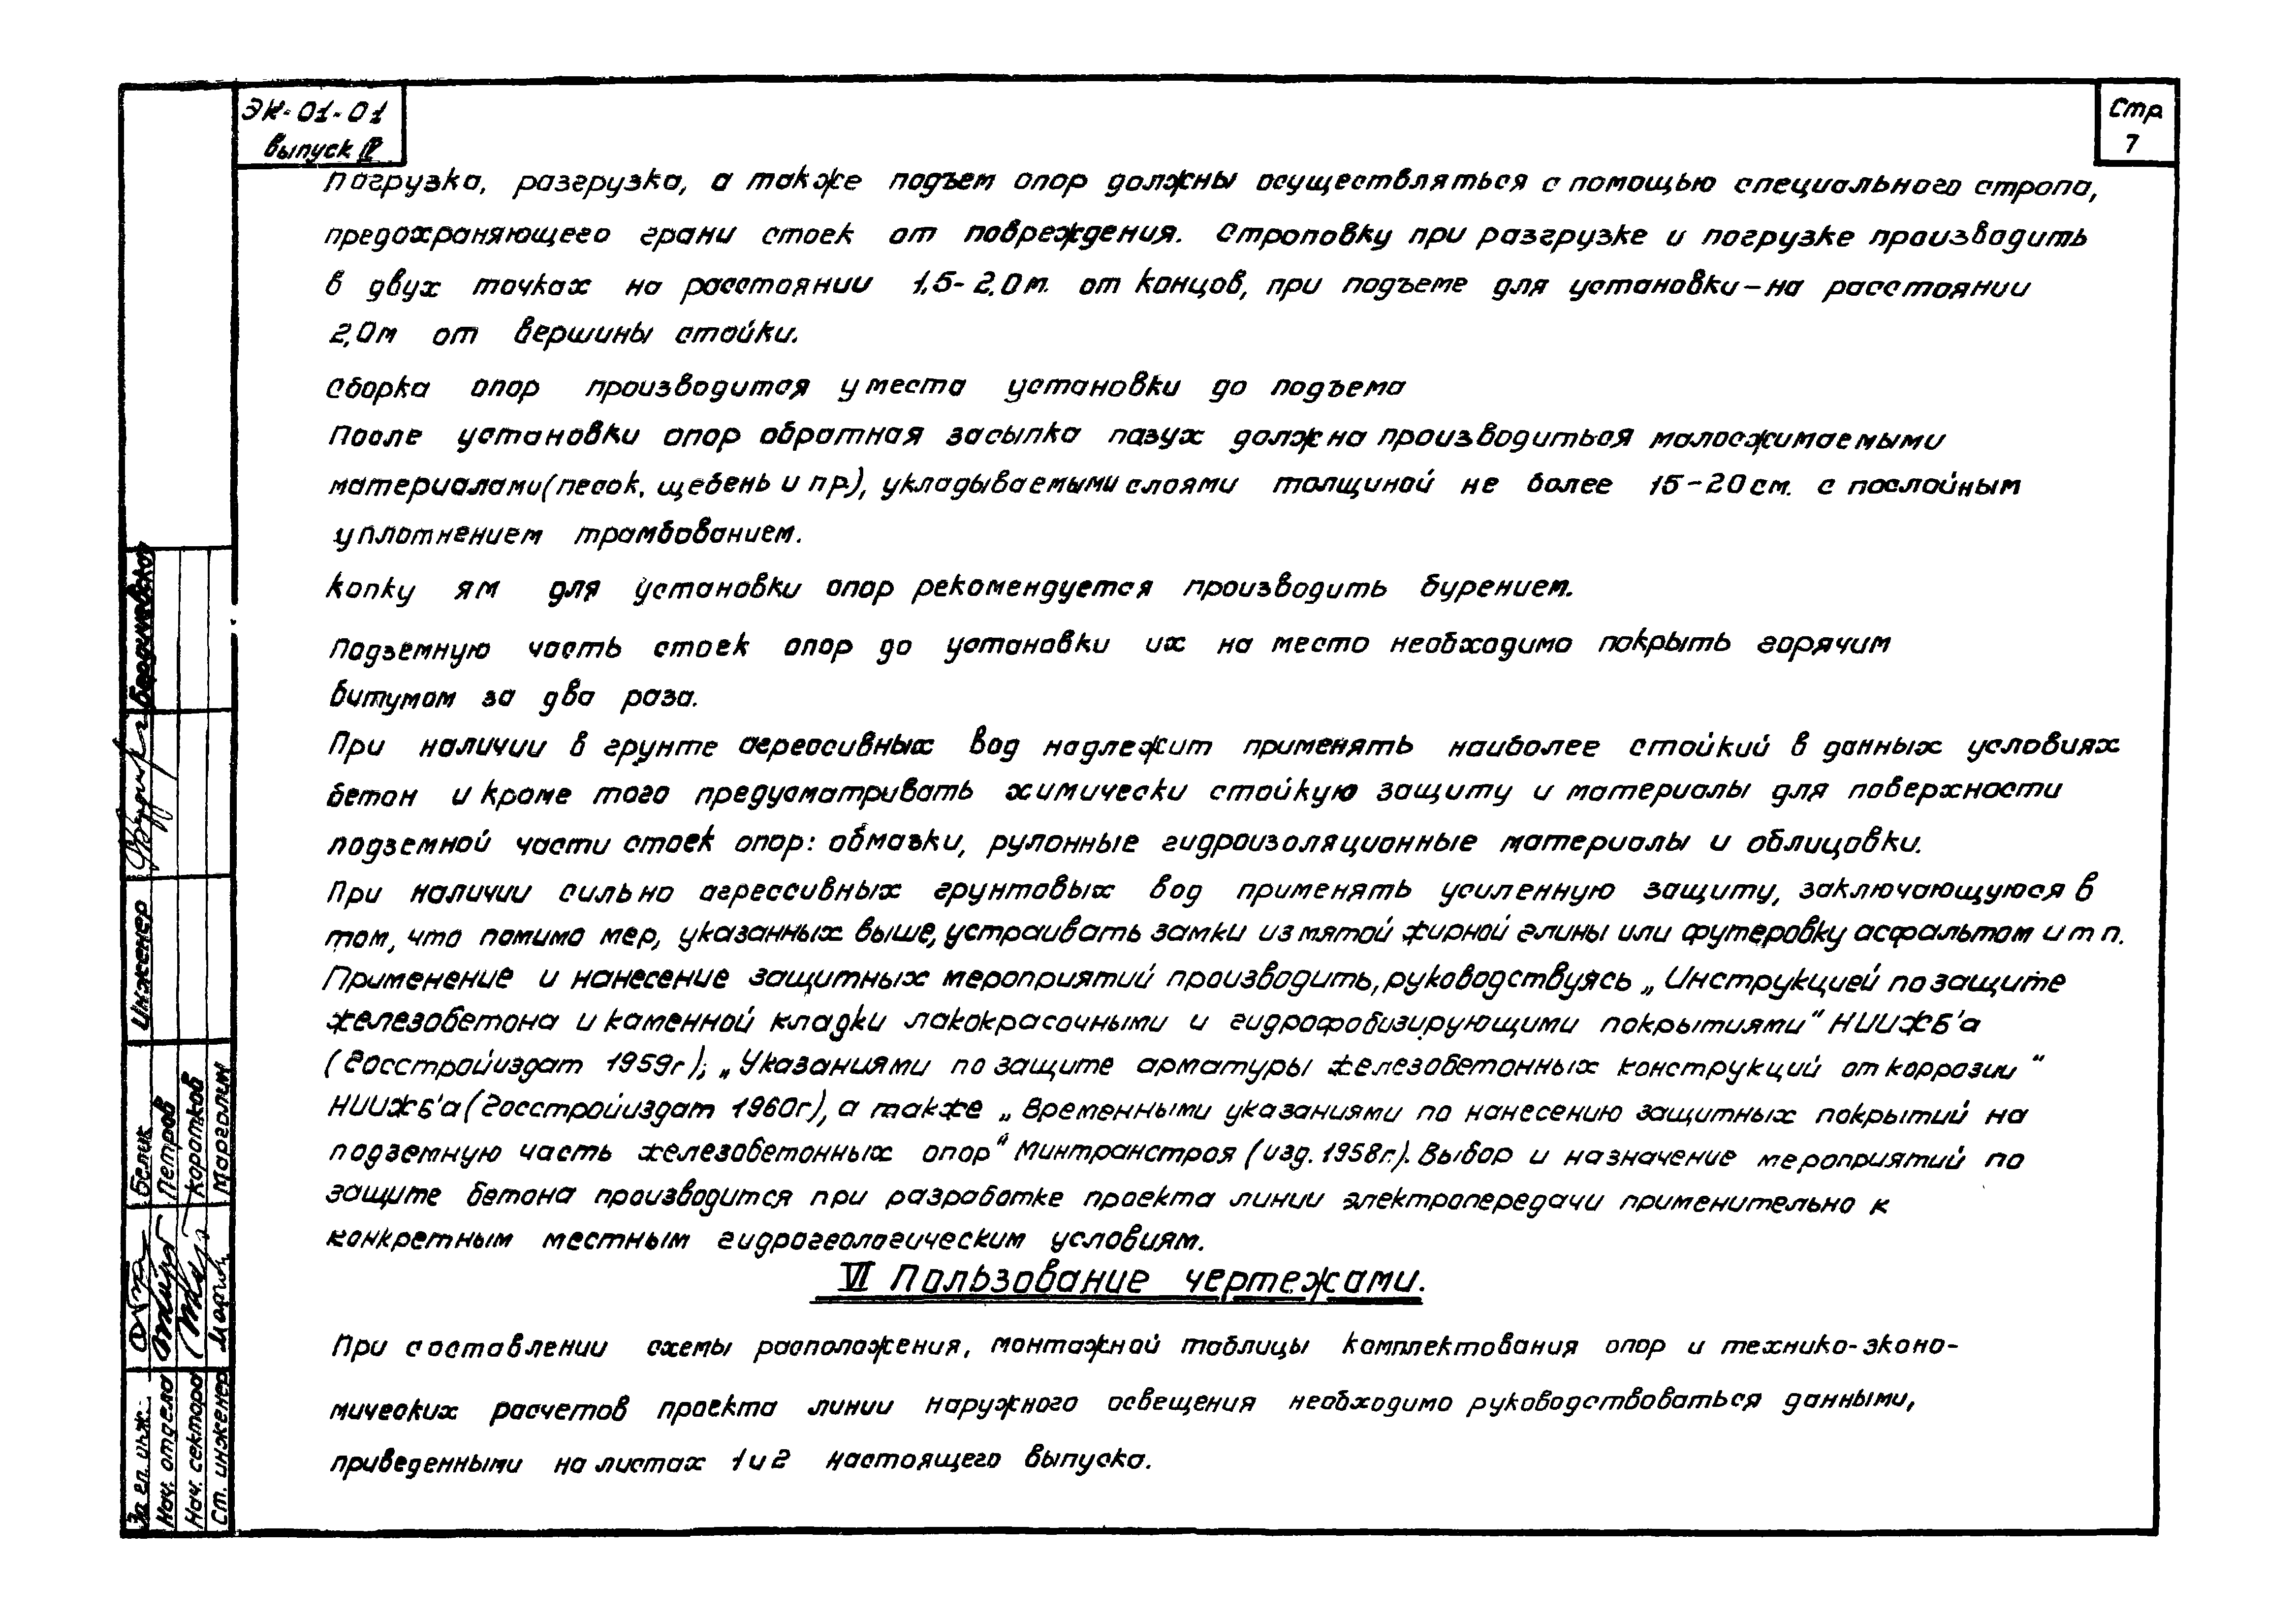 ЭК-01-01
выпуск IV
Стр
7
Погрузка, разгрузка, а также подъем опор должны осуществляться с помощью специального стропа,
предохраняющего грани стоек от повреждения. Строповку при разгрузке и погрузке производить
в двух точках на расстоянии 1,5-2,0м. от концов, при подъеме для установки-на расстоянии
2,0м от вершины стойки.
Сборка опор производится у места установки до подъема
После установки опор обратная засыпка пазух должна производиться малосжимаемыми
материалами (песок, щебень и пр.), укладываемыми слоями толщиной не более 15-20 см. с послойным
уплотнением трамбованием.
Копку ям для установки опор рекомендуется производить бурением.
Подземную часть стоек опор до установки их на место необходимо покрыть горячим
битумом за два раза.
При наличии в грунте агрессивных вод надлежит применять наиболее стойкий в данных условиях
бетон и кроме того предусматривать химически стойкую защиту и материалы для поверхности
подземной части стоек опор: обмазки, рулонные гидроизоляционные материалы и облицовки.
При наличии сильно агрессивных грунтовых вод применять усиленную защиту, заключающуюся в
том, что помимо мер, указанных выше, устраивать замки из мятой жирной глины или футеровку асфальтом и т п.
Применение и нанесение защитных мероприятий производить, руководствуясь „Инструкцией по защите
железобетона и каменной кладки лакокрасочными и гидрофобизирующими покрытиями" НИИЖБ'а
(Госстройиздат 1959г); „Указаниями по защите арматуры железобетонных конструкций от коррозии"
НИИЖБ'а (Госстройиздат 1960г), а также „Временными указаниями по нанесению защитных покрытий на
подземную часть железобетонных опор" Минтрансстроя (изд. 1958г.). Выбор и назначение мероприятий по
защите бетона производится при разработке проекта линии электропередачи применительно к
конкретным местным гидрогеологическим условиям.
VI Пользование чертежами.
При составлении схемы расположения, монтажной таблицы комплектования опор и технико-эконо-
мических расчетов проекта линии наружного освещения необходимо руководствоваться данными,
приведенными на листах 1 и 2 настоящего выпуска.
За гл. инж. Белик Инженер
Нач. отдела Петров
Нач. сектора Коротков
Ст. инженер Марголин